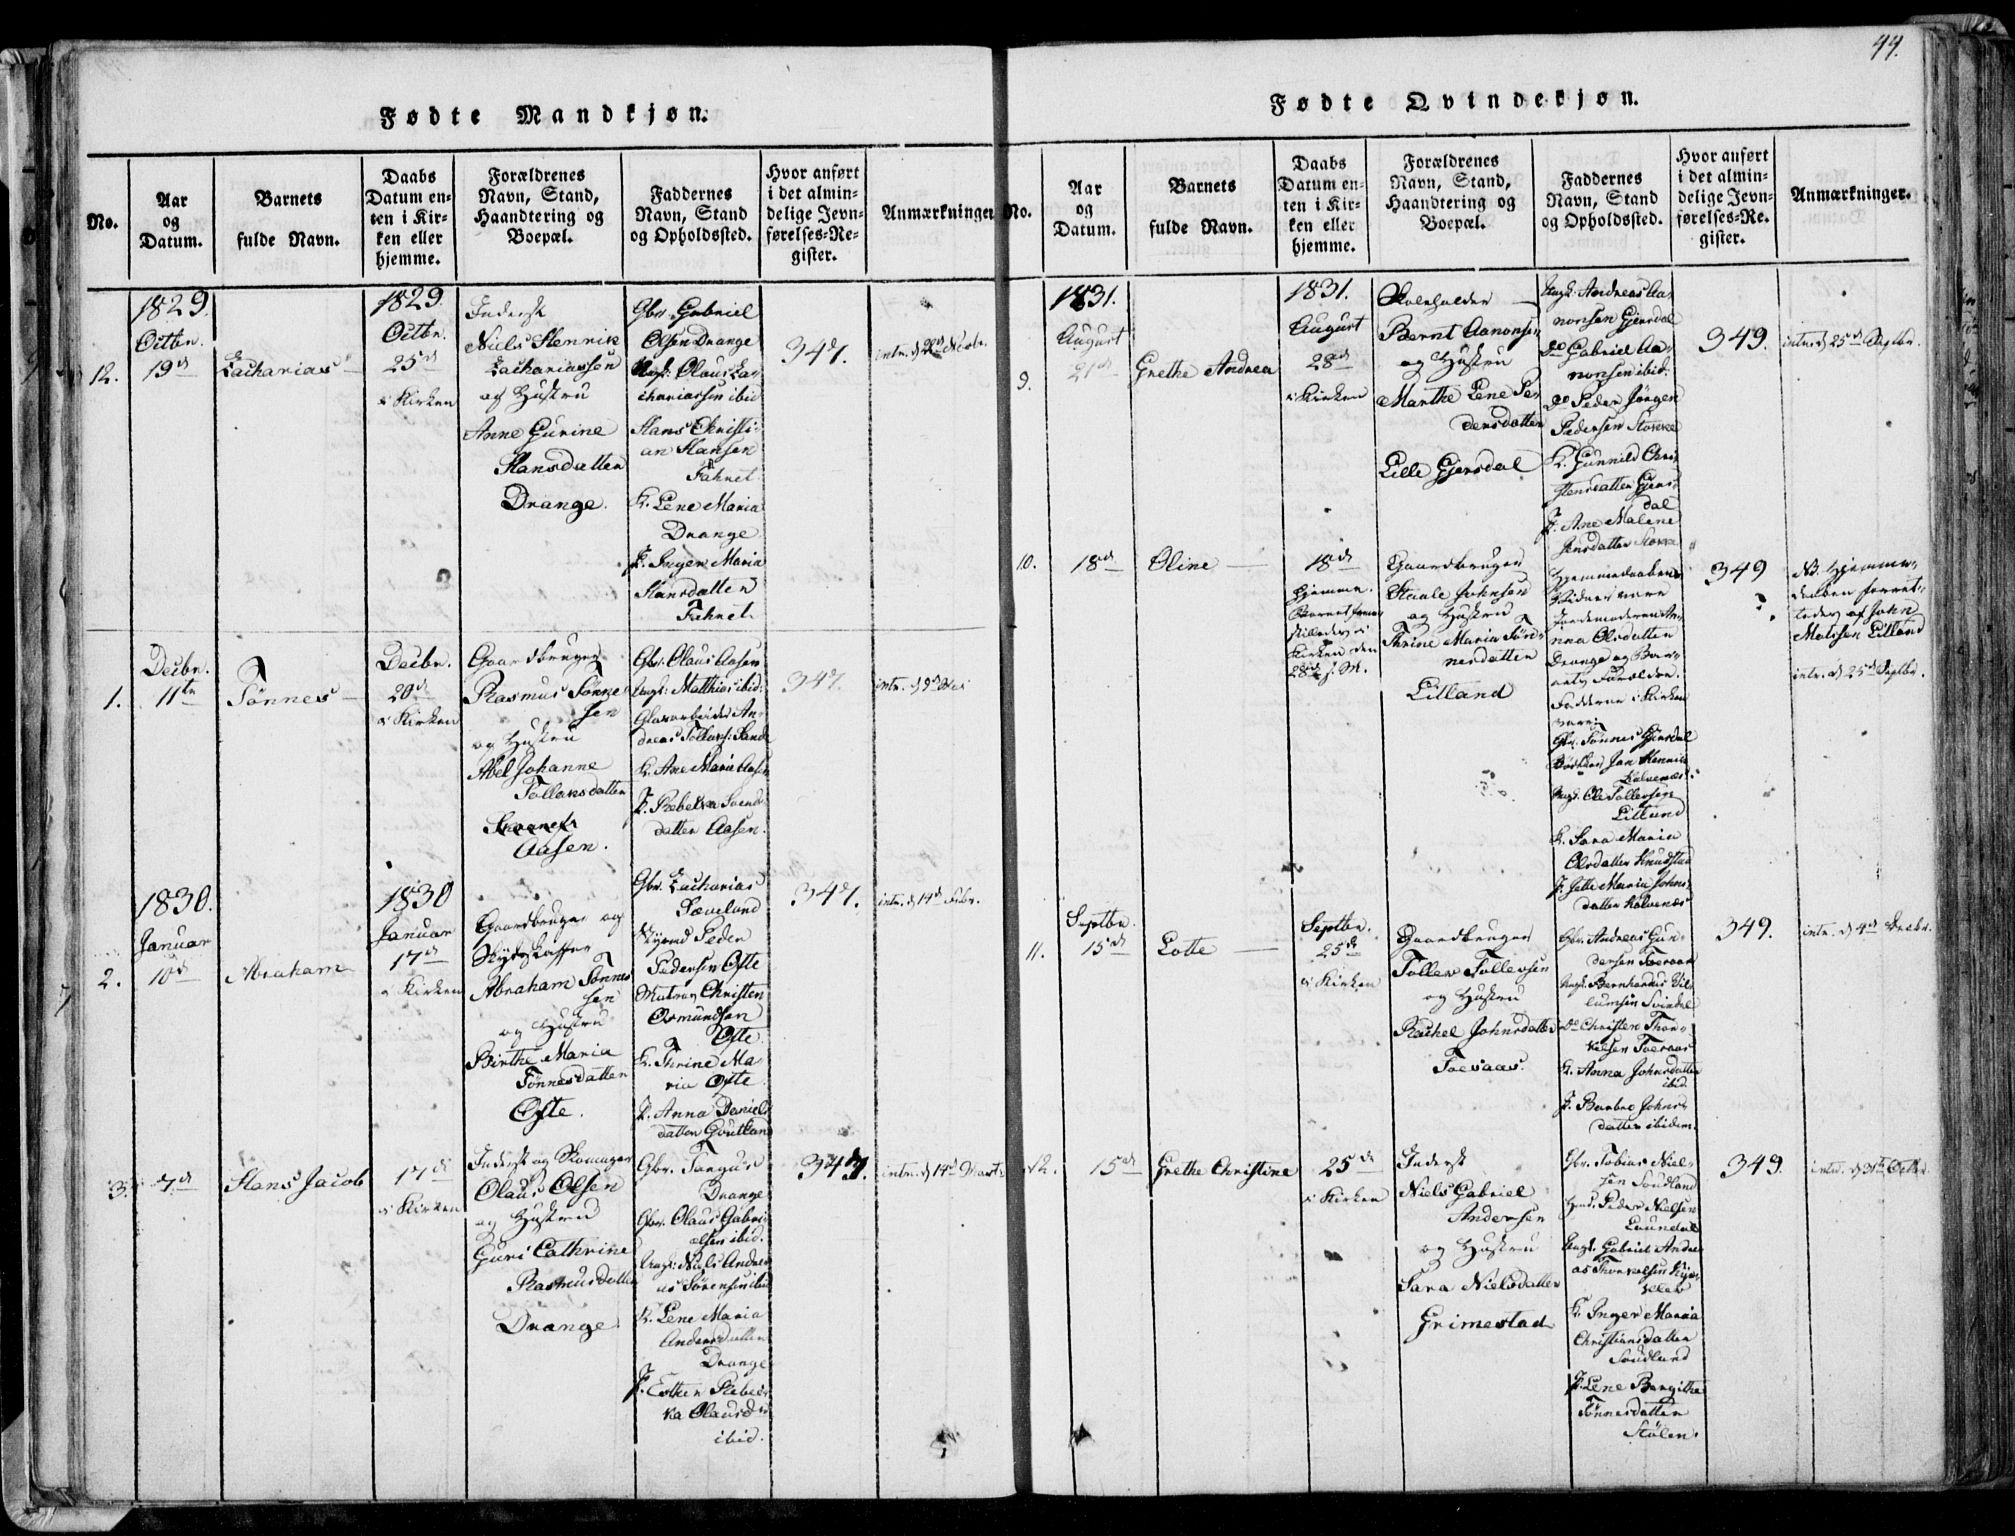 44.
Fødte Mandkjøn.
No.
Aar
og
Datum.
Barnets
fulde Navn.
Daabs
Datum en-
ten i Kir-
ken eller
hjemme.
Forældrenes
Navn, Stand,
Haandtering og
Boepæl.
Faddernes
Navn, Stand
og Opholdssted.
Hvor anført
i det almin-
delige Jevn-
førelses-Re-
gister.
Anmærkninger
12.
1829.
Octbr.
19de
Zacharias
1829.
Octbr.
25de
i Kirken
Inderst
Niels Henrik
Zachariassen
og Hustru
Anne Gurine
Hansdatter
Drange.
Gbr. Gabriel
Olsen Drange
Ungk: Olaus Za-
chariassen ibid
Hans Christi-
an Hansen
Fahret.
K. Lene Maria
Drange
P. Inger Maria
Hansdatter
Fahret.
347.
1.
Decbr.
11te
Tønnes
Decbr.
20de
i Kirken
Gaardbruger
Rasmus Tønne-
sen
og Hustru
Abel Johanne
Tollaksdatter
Aasen.
Gbr. Olaus Aasen
Ungk: Matthias ibid:
Andreas Tollaks: Sande
K. Ane Maria Aasen
P. Rebekka Svends-
datter Aasen.
347.
2.
1830.
Januar
10de
Abraham
1830
Januar
17de
i Kirken
Gaardbruger og
Skydsskaffer
Abraham Tønnes-
sen
og Hustru
Birthe Maria
Tønnesdatter
Øfte.
Gbr. Zacharias
Sæveland
Peder
Pedersen Øfte
Christen
Osmundsen
Øfte
K. Thrine Ma-
ria Øfte
P. Anna Daniels-
datter
347.
intr. d 14de Febr.
3.
7de
Hans Jacob
17de
i Kirken
Inderst og Skomager
Olaus Olsen
og Hustru
Guri Cathrine
Rasmusdatter
Drange.
Gbr. Targus
Drange
Gbr. Olaus Gabri-
elsen ibid.
Ungk: Niels Andre-
as Sørensen ibid
K. Lene Maria
Andersdatter
Drange
P. Esther Rebek-
ka Olausd:
ibid.
347.
intr. d 14de Marts
Fødte Qvindekjøn.
No.
Aar
og
Datum.
Barnets
fulde Navn.
Daabs
Datum en-
ten i Kir-
ken eller
hjemme.
Forældrenes
Navn, Stand,
Haandtering og
Boepæl.
Faddernes
Navn, Stand
og Opholdssted.
Hvor anført
i det almin-
delige Jevn-
førelses-Re-
gister.
Anmærkninger.
9.
1831.
August
21de
Grethe Andrea
1831.
August
28de
i Kirken
Skoleholder
Bernt Aanonsen
og Hustru
Marthe Lene Pe-
dersdatter
Lille Gjersdal
Ungk. Andreas Aa-
nonsen Gjersdal
Do Gabriel Aa-
nonsen ibid:
Do Peder Jørgen
Pedersen Stokke
K. Gunnild Chri-
stensdatter Gjers-
dal
P. Ane Malene
Jensdatter Stokke
349.
intr. d 25de Septbr.
10.
18de
Oline
18de
hjemme.
Kirken den
28de
Gaardbruger
Staale Johnsen
og Hustru
Thrine Maria Tøn-
nesdatter
Lilland
Hjemmedaabens
Vidner vare
Jordemoderen An-
na Olsdatter
Drange og Bar-
nets Forældre.
Fadderne i Kirken
vare:
Gbr. Tønnes Gjersdal
Jan Henrik
Ungk. Ole Tollefsen
Lilland
K. Sara Maria
Olsdatter Knudstad
P. Jette Maria Johns-
datter
349
NB. Hjemme-
daaben forret-
tedes af John
Mathisen Lilland
intr. d 25de Septbr.
11.
Septbr.
15de
Lotte
Septbr.
25de
i Kirken
Gaardbruger
Tollev Tollevsen
og Hustru
Rachel Johnsdatter
Foesaas.
Gbr. Andreas Gun-
dersen Foesaas
Ungk. Bernhardus Vil-
lumsen Svindal
Do Christen Thor-
kelsen Foesaas
K. Anna Johnsdatter
ibid.
P. Barbro Johns-
datter ibidem.
349.
12.
15de
Grethe Christine
25de
i Kirken
Inderst
Niels Gabriel
Andersen
og Hustru
Sara Nielsdatter
Grimestad
Gbr. Tobias Niel-
sen Soudland
Peder Nielsen
Ungk. Gabriel Andre-
as Thorkelsen
K. Inger Maria
Christiansdatter
Soudland
P. Lene Bergithe
Tønnesdatter
Stølen.
349.